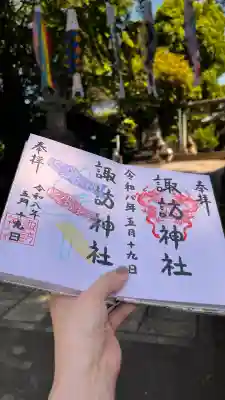 奉拝
諏訪神社
令和八年五月十九日
奉拝
諏訪神社
令和八年
五月十九日